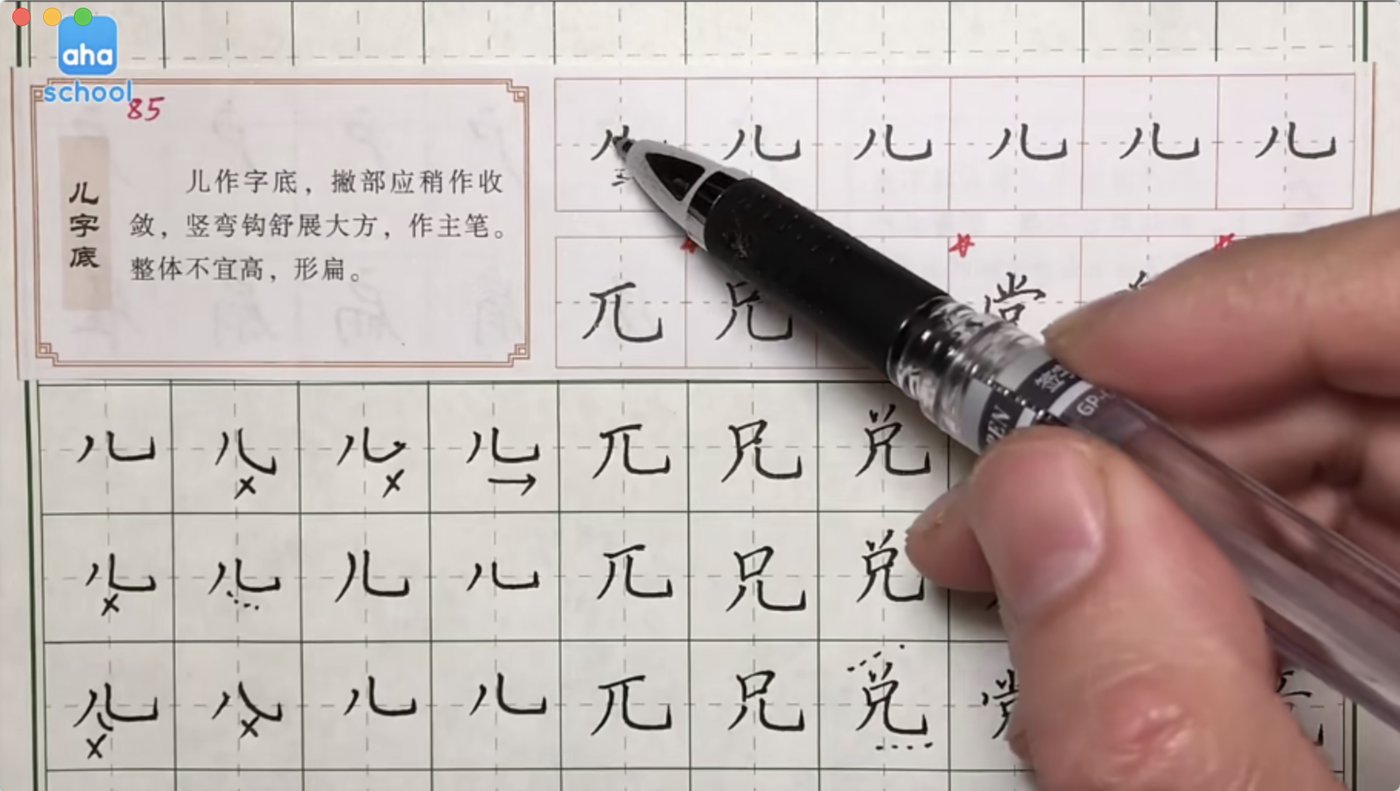 aha
school
85
儿字底
儿作字底，撇部应稍作收
敛，竖弯钩舒展大方，作主笔。
整体不宜高，形扁。
儿 儿 儿 儿 儿
兀 兄 党
儿 儿 儿 儿 兀 兄 兑
儿 儿 儿 儿 兀 兄 兑
儿 儿 儿 儿 兀 兄 兑 党
签字
PEN
GP-